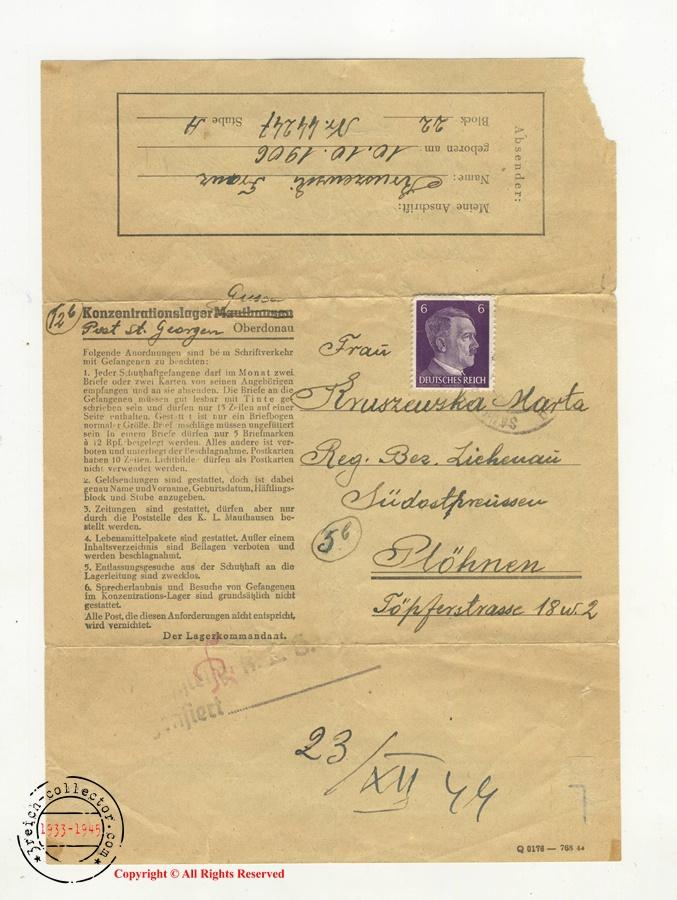 Absender:
Meine Anschrift:
Name: Kruszewski Franz
geboren am 10.10.1906
Block 22 Nr. 44247 Stube A
Gusen
12b Konzentrationslager Mauthausen
Post St. Georgen Oberdonau
Folgende Anordnungen sind beim Schriftverkehr
mit Gefangenen zu beachten:
1. Jeder Schutzhaftgefangene darf im Monat zwei
Briefe oder zwei Karten von seinen Angehörigen
empfangen und an sie absenden. Die Briefe an die
Gefangenen müssen gut lesbar mit Tinte ge-
schrieben sein und dürfen nur 15 Zeilen auf einer
Seite enthalten. Gestattet ist nur ein Briefbogen
normaler Größe. Briefumschläge müssen ungefüttert
sein. In einem Briefe dürfen nur 5 Briefmarken
à 12 Rpf. beigelegt werden. Alles andere ist ver-
boten und unterliegt der Beschlagnahme. Postkarten
haben 10 Zeilen. Lichtbilder dürfen als Postkarten
nicht verwendet werden.
2. Geldsendungen sind gestattet, doch ist dabei
genau Name und Vorname, Geburtsdatum, Häftlings-
block und Stube anzugeben.
3. Zeitungen sind gestattet, dürfen aber nur
durch die Poststelle des K. L. Mauthausen be-
stellt werden.
4. Lebensmittelpakete sind gestattet. Außer einem
Inhaltsverzeichnis sind Beilagen verboten und
werden beschlagnahmt.
5. Entlassungsgesuche aus der Schutzhaft an die
Lagerleitung sind zwecklos.
6. Sprecherlaubnis und Besuche von Gefangenen
im Konzentrations-Lager sind grundsätzlich nicht
gestattet.
Alle Post, die diesen Anforderungen nicht entspricht,
wird vernichtet.
Der Lagerkommandant.
6 6
DEUTSCHES REICH
Frau
Kruszewska Marta
Reg. Bez. Zichenau
Südostpreussen
5b Plöhnen
Töpferstrasse 18 w 2
23/XII 44
Q 0176 — 768 44
3reich-collector.com
1933-1945
Copyright © All Rights Reserved